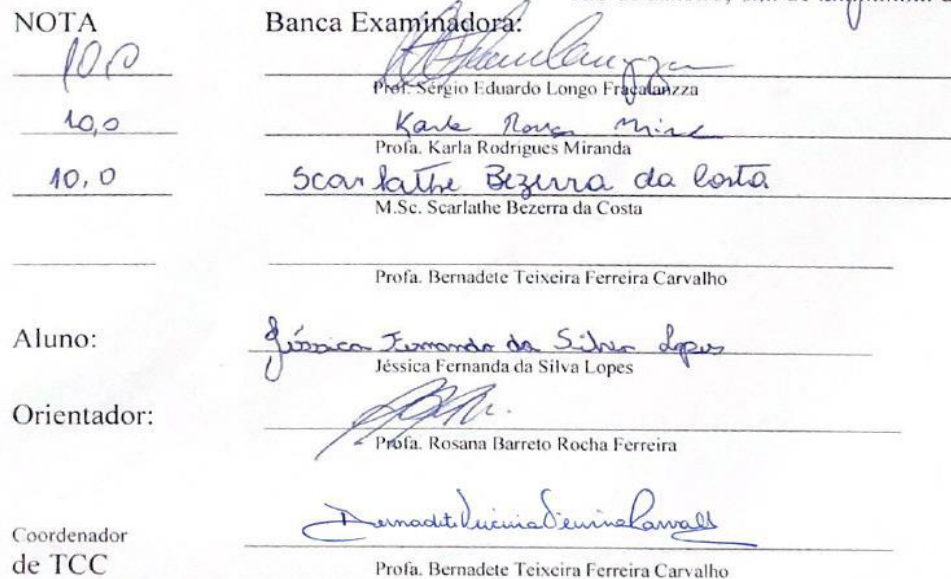 NOTA Banca Examinadora:
10,0
Prof. Sérgio Eduardo Longo Fracalanzza
10,0 Karla
Profa. Karla Rodrigues Miranda
10,0 Scarlathe Bezerra da Costa
M.Sc. Scarlathe Bezerra da Costa
Profa. Bernadete Teixeira Ferreira Carvalho
Aluno: Jéssica Fernanda da Silva Lopes
Jéssica Fernanda da Silva Lopes
Orientador:
Profa. Rosana Barreto Rocha Ferreira
Coordenador
de TCC
Profa. Bernadete Teixeira Ferreira Carvalho